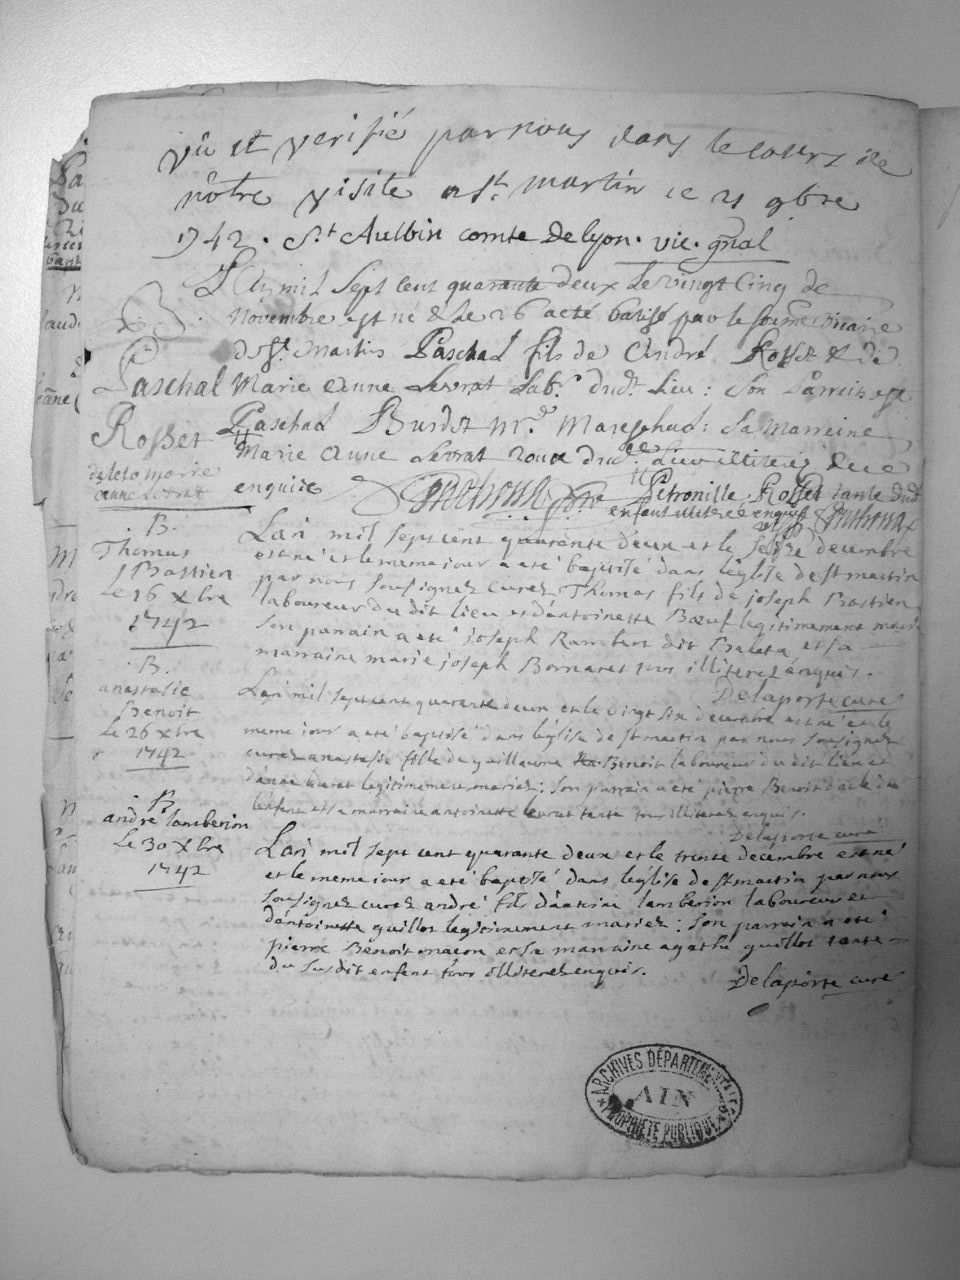 vû et verifié par nous dans le cours de
nôtre visite a st martin ce 21 9bre
1742. St Aulbin comte de lyon. vic. gnal
L'an mil sept cent quarante deux le vingt cinq de
Novembre est né & le 26 a eté batisé par le Vicaire
de St. Martin Paschal fils de André Rosset & de
Marie Anne Levrat lab.r dudt lieu: son Parrein est
Paschal Burdet Mareschal: sa Marreine
Marie Anne Levrat dud. Lieu illiterez de ce
enquise Petronille Rosset tante dud
enfant illiteré enquis
B.
Paschal
Rosset
de marie
anne Levrat
L'an mil sept cent quarante deux et le seize decembre
est né et le meme jour a eté baptisé dans l'eglise de st martin
par nous soussignez curez Thomas fils de joseph Bastien
laboureur du dit lieu et d'antoinette Bœuf légitimement mariez
son parrain a eté joseph Rambert dit Baleta et sa
marraine marie joseph Bornaret tous illiterez enquis.
Delaporte curé
B.
Thomas
Bastien
le 16 xbre
1742
L'an mil sept cent quarante deux et le vingt six decembre est né et le
meme jour a eté baptisé dans l'église de st martin par nous soussignez
curez anastasie fille de guillaume Benoit laboureur du dit lieu et
legitimement mariez: son parrain a eté pierre Benoit oncle de
l'enfent et sa marraine antoinette levrat tante tous illiterez enquis.
Delaporte curé
B.
anastasie
Benoit
le 26 xbre
1742
L'an mil sept cent quarante deux et le trente decembre est né
et le meme jour a eté baptisé dans l'eglise de st martin par nous
soussignez curez andré fils d'antoine lamberion laboureur et
d'antoinette guillot legitimement mariez: son parrain a eté
pierre Benoit macon et sa marraine agathe guillot tante
du susdit enfent tous illiterez enquis.
Delaporte curé
B.
andre lamberion
le 30 xbre
1742
ARCHIVES DÉPARTEMENTALES
AIN
PROPRIÉTÉ PUBLIQUE